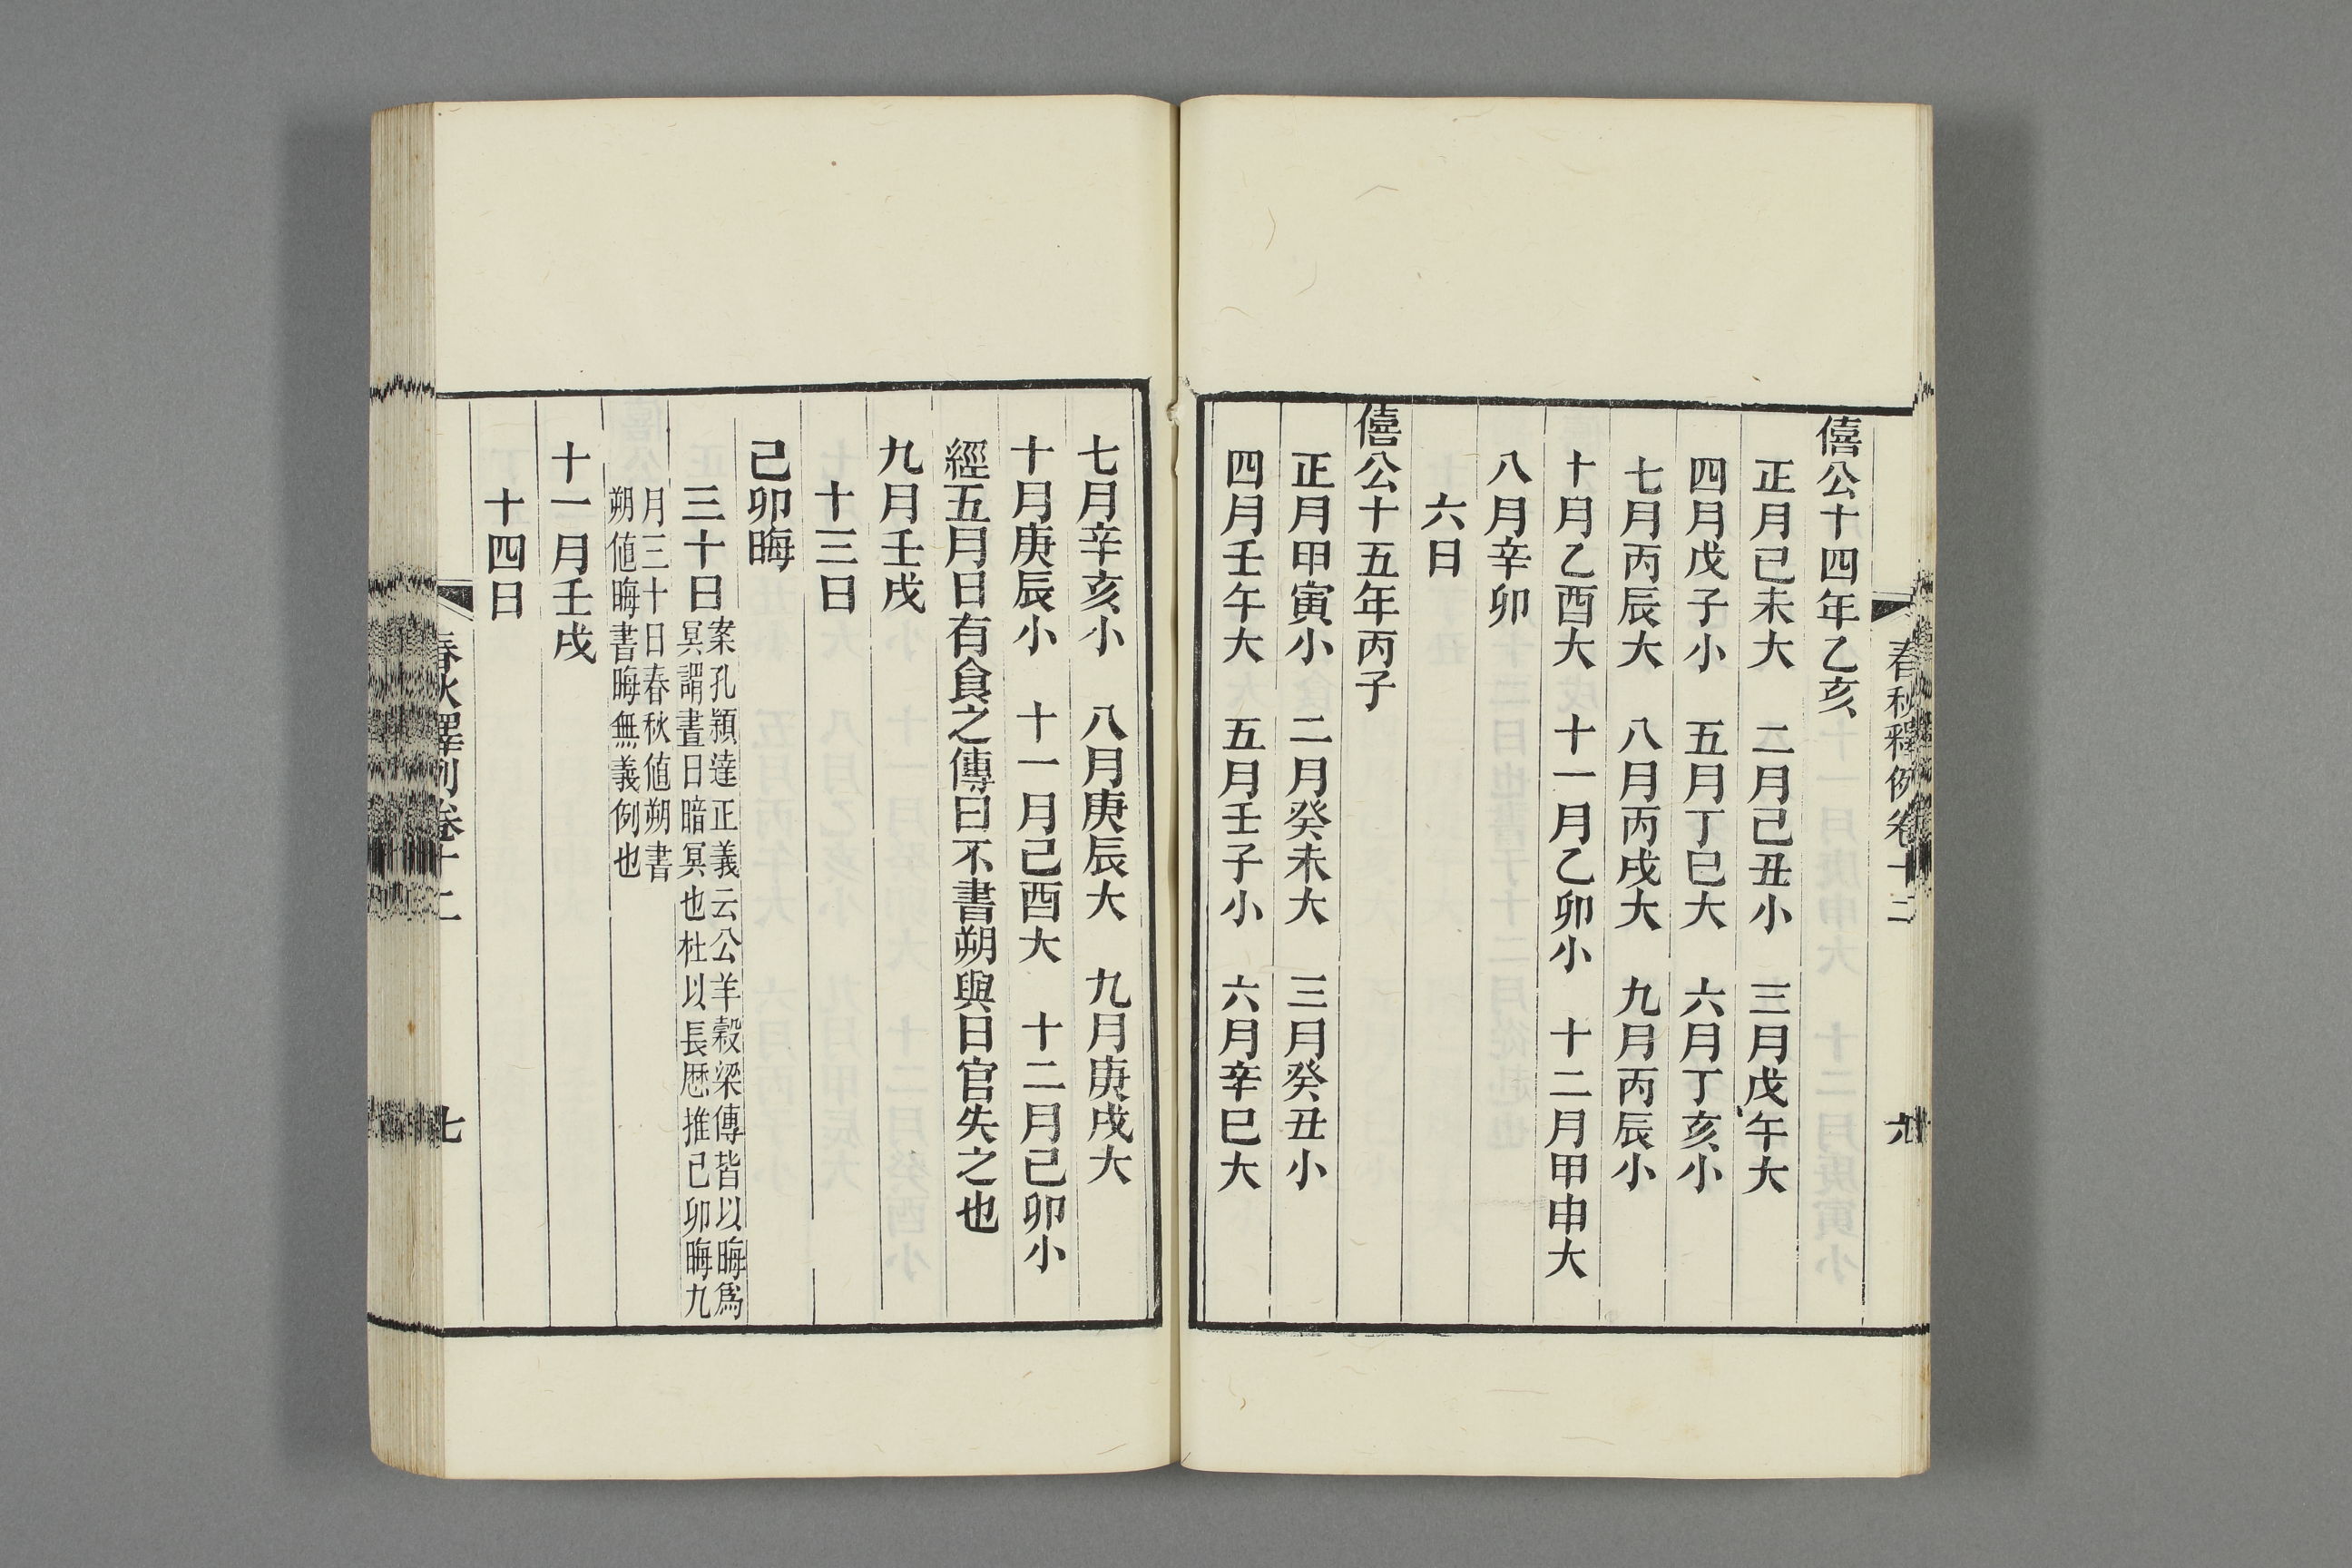 僖公十四年乙亥
正月己未大　二月己丑小　三月戊午大
四月戊子小　五月丁巳大　六月丁亥小
七月丙辰大　八月丙戌大　九月丙辰小
十月乙酉大　十一月乙卯小　十二月甲申大
八月辛卯
六日
僖公十五年丙子
正月甲寅小　二月癸未大　三月癸丑小
四月壬午大　五月壬子小　六月辛巳大
七月辛亥小　八月庚辰大　九月庚戌大
十月庚辰小　十一月己酉大　十二月己卯小
經五月日有食之傳曰不書朔與日官失之也
九月壬戌
十三日
己卯晦
三十日案孔穎達正義云公羊穀梁傳皆以晦爲
冥謂晝日暗冥也杜以長厯推己卯晦九
月三十日春秋値朔書
朔値晦書晦無義例也
十一月壬戌
十四日
春秋釋例卷十二
七